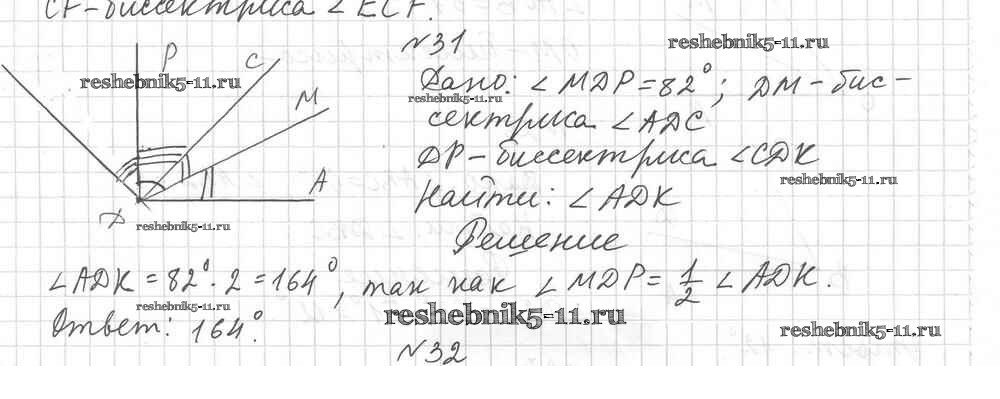 CF-биссектриса ∠ECF.
N31
reshebnik5-11.ru
P
C
reshebnik5-11.ru
M
Дано: ∠MDP=82°; DM-бис-
reshebnik5-11.ru
сектриса ∠ADC
DP-биссектриса ∠CDK
reshebnik5-11.ru
A
Найти: ∠ADK
D
reshebnik5-11.ru
Решение
∠ADK = 82°·2=164°, так как ∠MDP= 1/2 ∠ADK.
reshebnik5-11.ru
Ответ: 164°.
reshebnik5-11.ru
reshebnik5-11.ru
N32